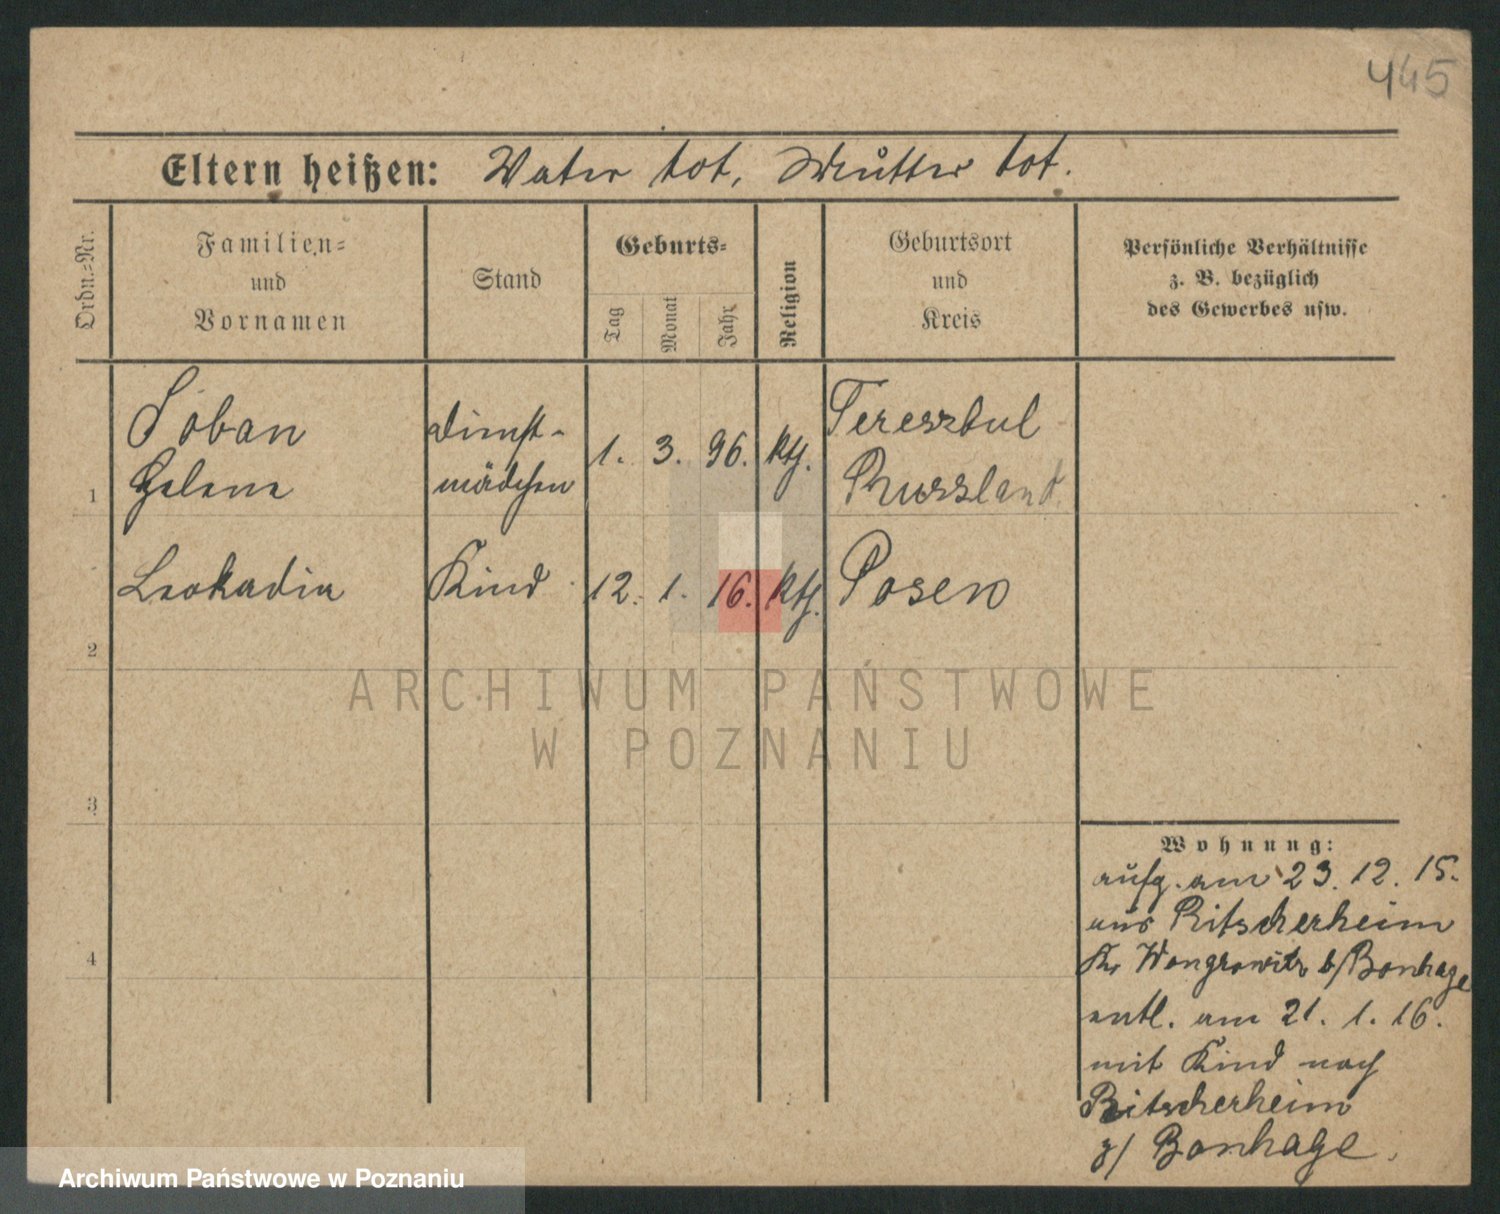 445
Eltern heißen: Vater tot, Mutter tot.
Ordn.=Nr.
Familien=
und
Vornamen
Stand
Geburts=
Tag
Monat
Jahr
Religion
Geburtsort
und
Kreis
Persönliche Verhältnisse
z. B. bezüglich
des Gewerbes usw.
1
Soban
Helene
Dienst-
mädchen
1. 3. 96. kth.
Tereszbul
Russland
2
Leokadia
Kind
12. 1. 16. kth.
Posen
3
4
Wohnung:
aufg. am 23. 12. 15.
aus Ritscherheim
Kr Wongrowitz b/Bonhage
entl. am 21. 1. 16.
mit Kind nach
Ritscherheim
z/ Bonhage.
ARCHIWUM PAŃSTWOWE
W POZNANIU
Archiwum Państwowe w Poznaniu